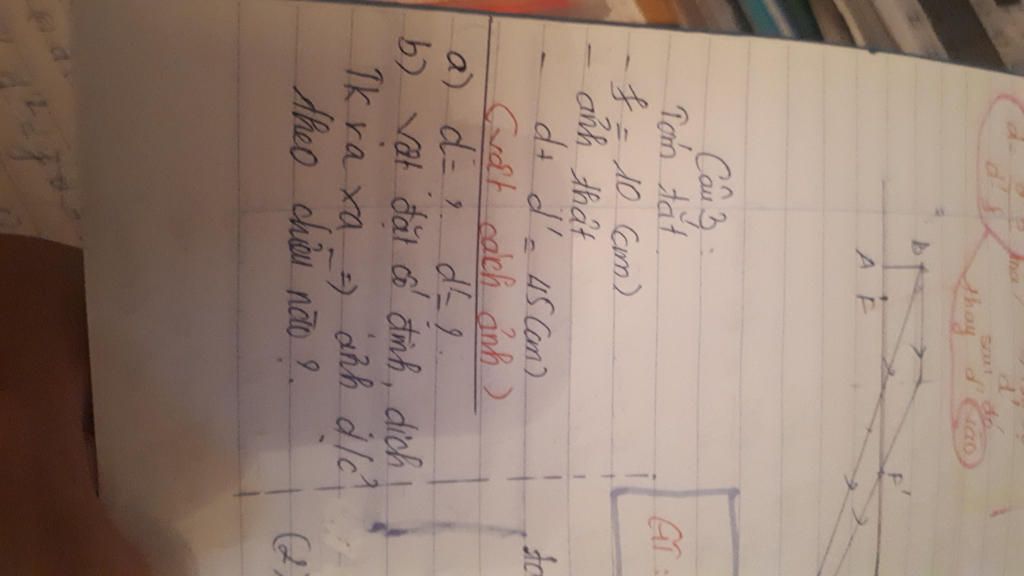 B
A
F
F'
Câu 3:
Tóm tắt
- f = 10 (cm)
- ảnh thật
- d + d' = 45 (cm)
(vật cách ảnh)
a) d = ? d' = ?
b) vật đặt cố định, dịch
TK ra xa => ảnh d/c?
theo chiều nào?
thay
d' vào